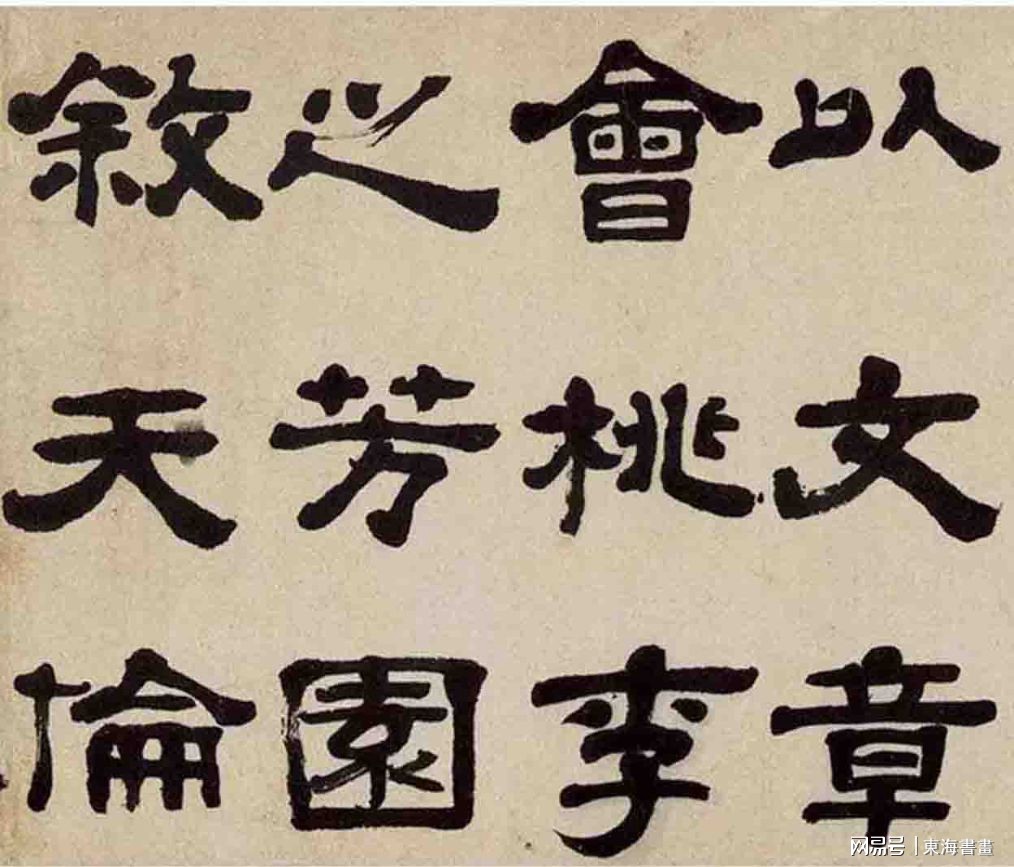 以文章
會桃李
之芳園
敘天倫
网易号 | 東海書畫